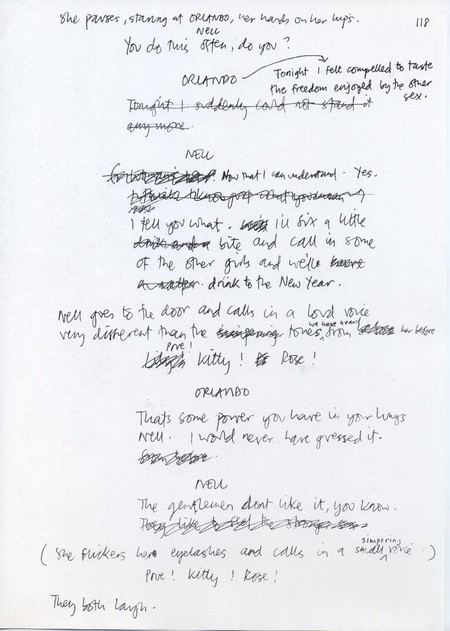 She pauses, staring at ORLANDO, her hands on her hips.
118
NELL
You do this often, do you?
ORLANDO
Tonight I felt compelled to taste
the freedom enjoyed by the other
sex.
Tonight I suddenly could not stand it
any more.
NELL
Now that I can understand. Yes.
I tell you what. I'll fix a little
bite and call in some
of the other girls and we'll have
a natter. drink to the New Year.
Nell goes to the door and calls in a loud voice
very different than the simpering tones we have heard from her before
Prue!
Kitty! Rose!
ORLANDO
Thats some power you have in your lungs
Nell. I would never have guessed it.
NELL
The gentlemen dont like it, you know.
(She flickers her eyelashes and calls in a small simpering voice.)
Prue! Kitty! Rose!
They both laugh.